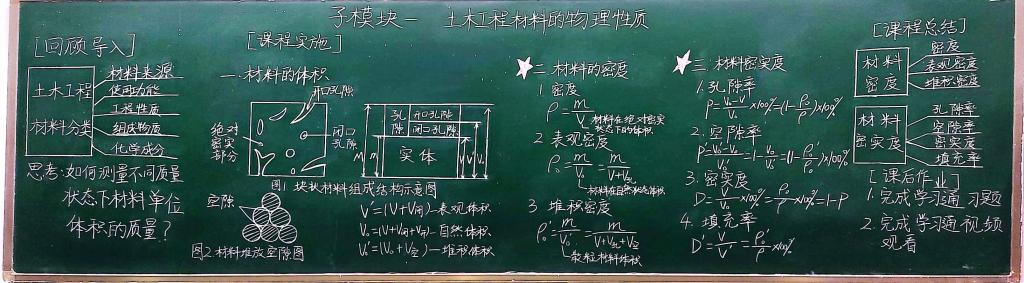 子模块一 土木工程材料的物理性质
[回顾导入]
土木工程
材料分类
材料来源
使用功能
工程性质
组成物质
化学成分
思考:如何测量不同质量
状态下材料单位
体积的质量?
[课程实施]
一.材料的体积
开口孔隙
绝对
密实
部分
闭口
孔隙
孔
隙
开口孔隙
闭口孔隙
实体
图1 块状材料组成结构示意图
空隙
图2.材料堆放空隙图
V'=(V+V闭)—表观体积
V₀=(V+V开+V闭)—自然体积
V₀'=(V₀+V空)—堆积体积
二.材料的密度
1.密度
ρ=m/V
材料在绝对密实
状态下的体积
2.表观密度
ρ₀=m/V₀=m/V+V孔
材料在自然状态体积
3.堆积密度
ρ₀'=m/V₀'=m/V+V孔+V空
散粒材料体积
三.材料密实度
1.孔隙率
P=V₀-V/V₀×100%=(1-ρ₀/ρ)×100%
2.空隙率
P'=V₀'-V₀/V₀'=1-V₀/V₀'=(1-ρ₀'/ρ₀)×100%
3.密实度
D=V/V₀×100%=ρ₀/ρ×100%=1-P
4.填充率
D'=V₀/V₀'=ρ₀'/ρ₀×100%
[课程总结]
材料
密度
密度
表观密度
堆积密度
材料
密实度
孔隙率
空隙率
密实度
填充率
[课后作业]
1.完成学习通习题
2.完成学习通视频
观看